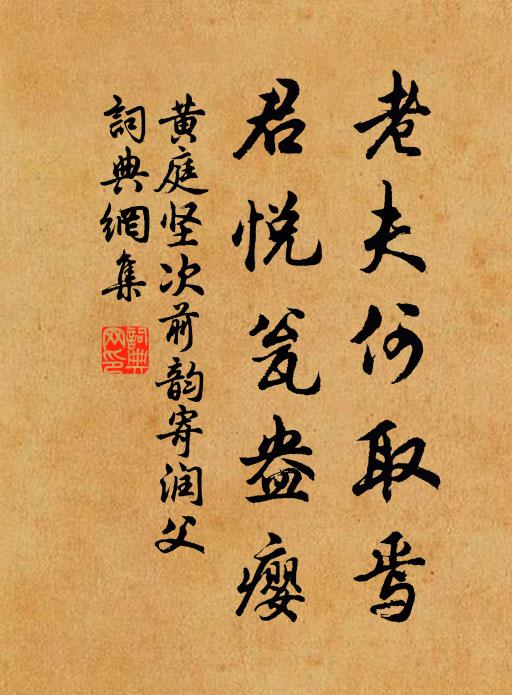 老夫何取焉
君悦瓮盎瘿
黄庭坚次前韵寄润父
詞典網集
詞典網印